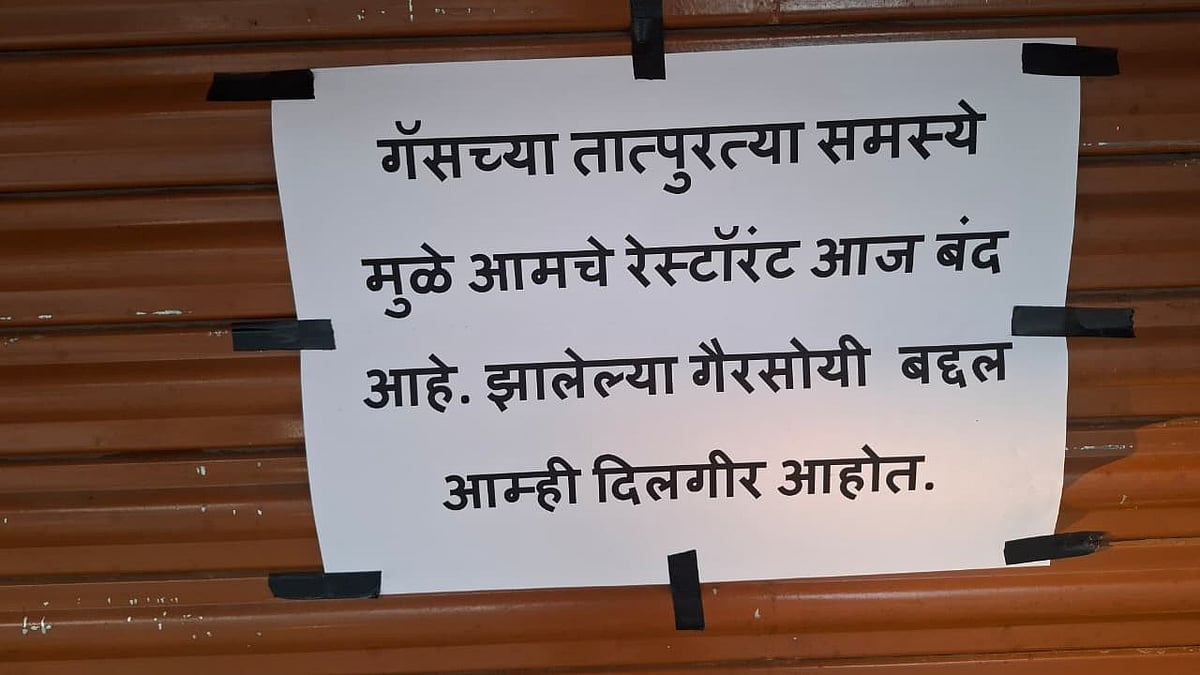 गॅसच्या तात्पुरत्या समस्ये
मुळे आमचे रेस्टॉरंट आज बंद
आहे. झालेल्या गैरसोयी बद्दल
आम्ही दिलगीर आहोत.